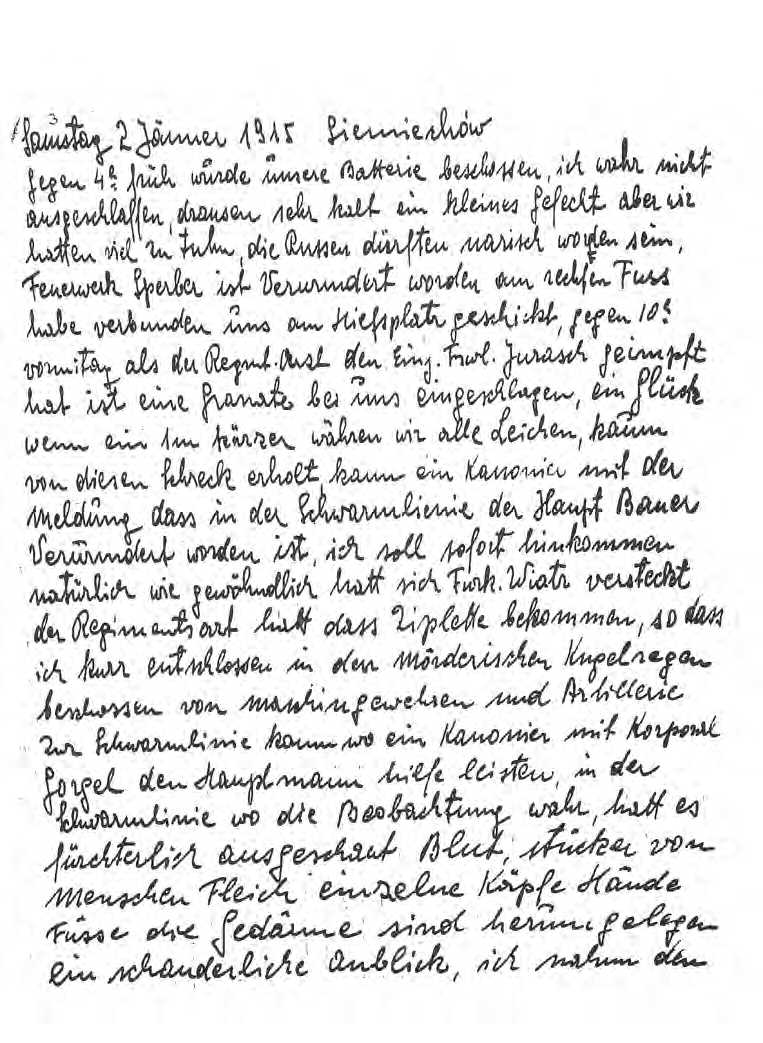 Samstag 2 Jänner 1915 Siemiechów
gegen 4h früh würde ünsere Batterie beschossen, ich wahr nicht
ausgeschlaffen, drausen sehr kalt ein kleines Gefecht aber wir
hatten viel zu tuhn, die Russen dürften narisch worden sein,
Feuerwerk Sperber ist Verwundert worden am rechten Fuss
habe verbunden üns am Hilfsplatz geschickt, gegen 10h
vormitag als der Regmt. Arst den Einj. Frwl. Jurasch geimpft
hat ist eine Granate bei üns eingeschlagen, ein Glück
wenn ein 1m kürzer währen wir alle Leichen, kaüm
von diesen Schreck erholt kam ein Kanonier mit der
Meldüng dass in der Schwarmlienie der Haupt Bauer
Verwundert worden ist, ich soll sofort hinkommen
natürlich wie gewöhndlich hatt sich Furk. Wiatr versteckt
der Regimentsart hatt dass Ziplette bekommen, so dass
ich kurz entschlossen in den Mörderischen Kugelregen
beschossen von maschingewehren und Artillerie
zur Schwarmlinie kamm wo ein Kanonier mit Korporal
Gorgel den Hauptmann hilfe leisten, in der
Schwarmlinie wo die Beobachtung wahr, hatt es
fürchterlich ausgeschaut Blut, stücker von
Menschen Fleich einzelne Köpfe Hände
Füsse die Gedärme sind herümgelegen
ein schauderliche anblick, ich nahm den